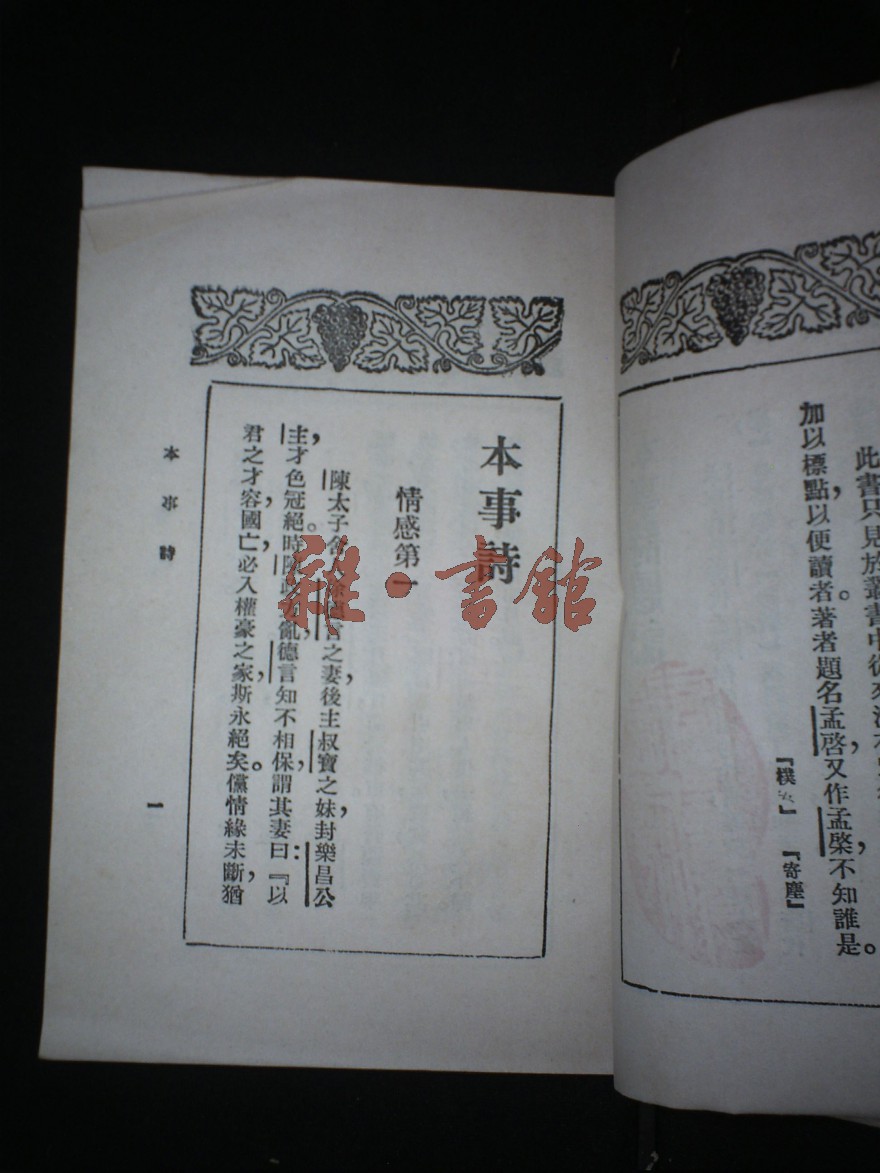 此書只見於叢書中從來
加以標點，以便讀者。著者題名孟啓，又作孟棨，不知誰是。
『樸
』『寄塵』
本事詩
情感第一
陳太子舍
言之妻，後主叔寶之妹，封樂昌公
主，才色冠絕。時陳
亂，德言知不相保，謂其妻曰：『以
君之才容，國亡，必入權豪之家，斯永絕矣。儻情緣未斷，猶
本事詩
一
雜·書館